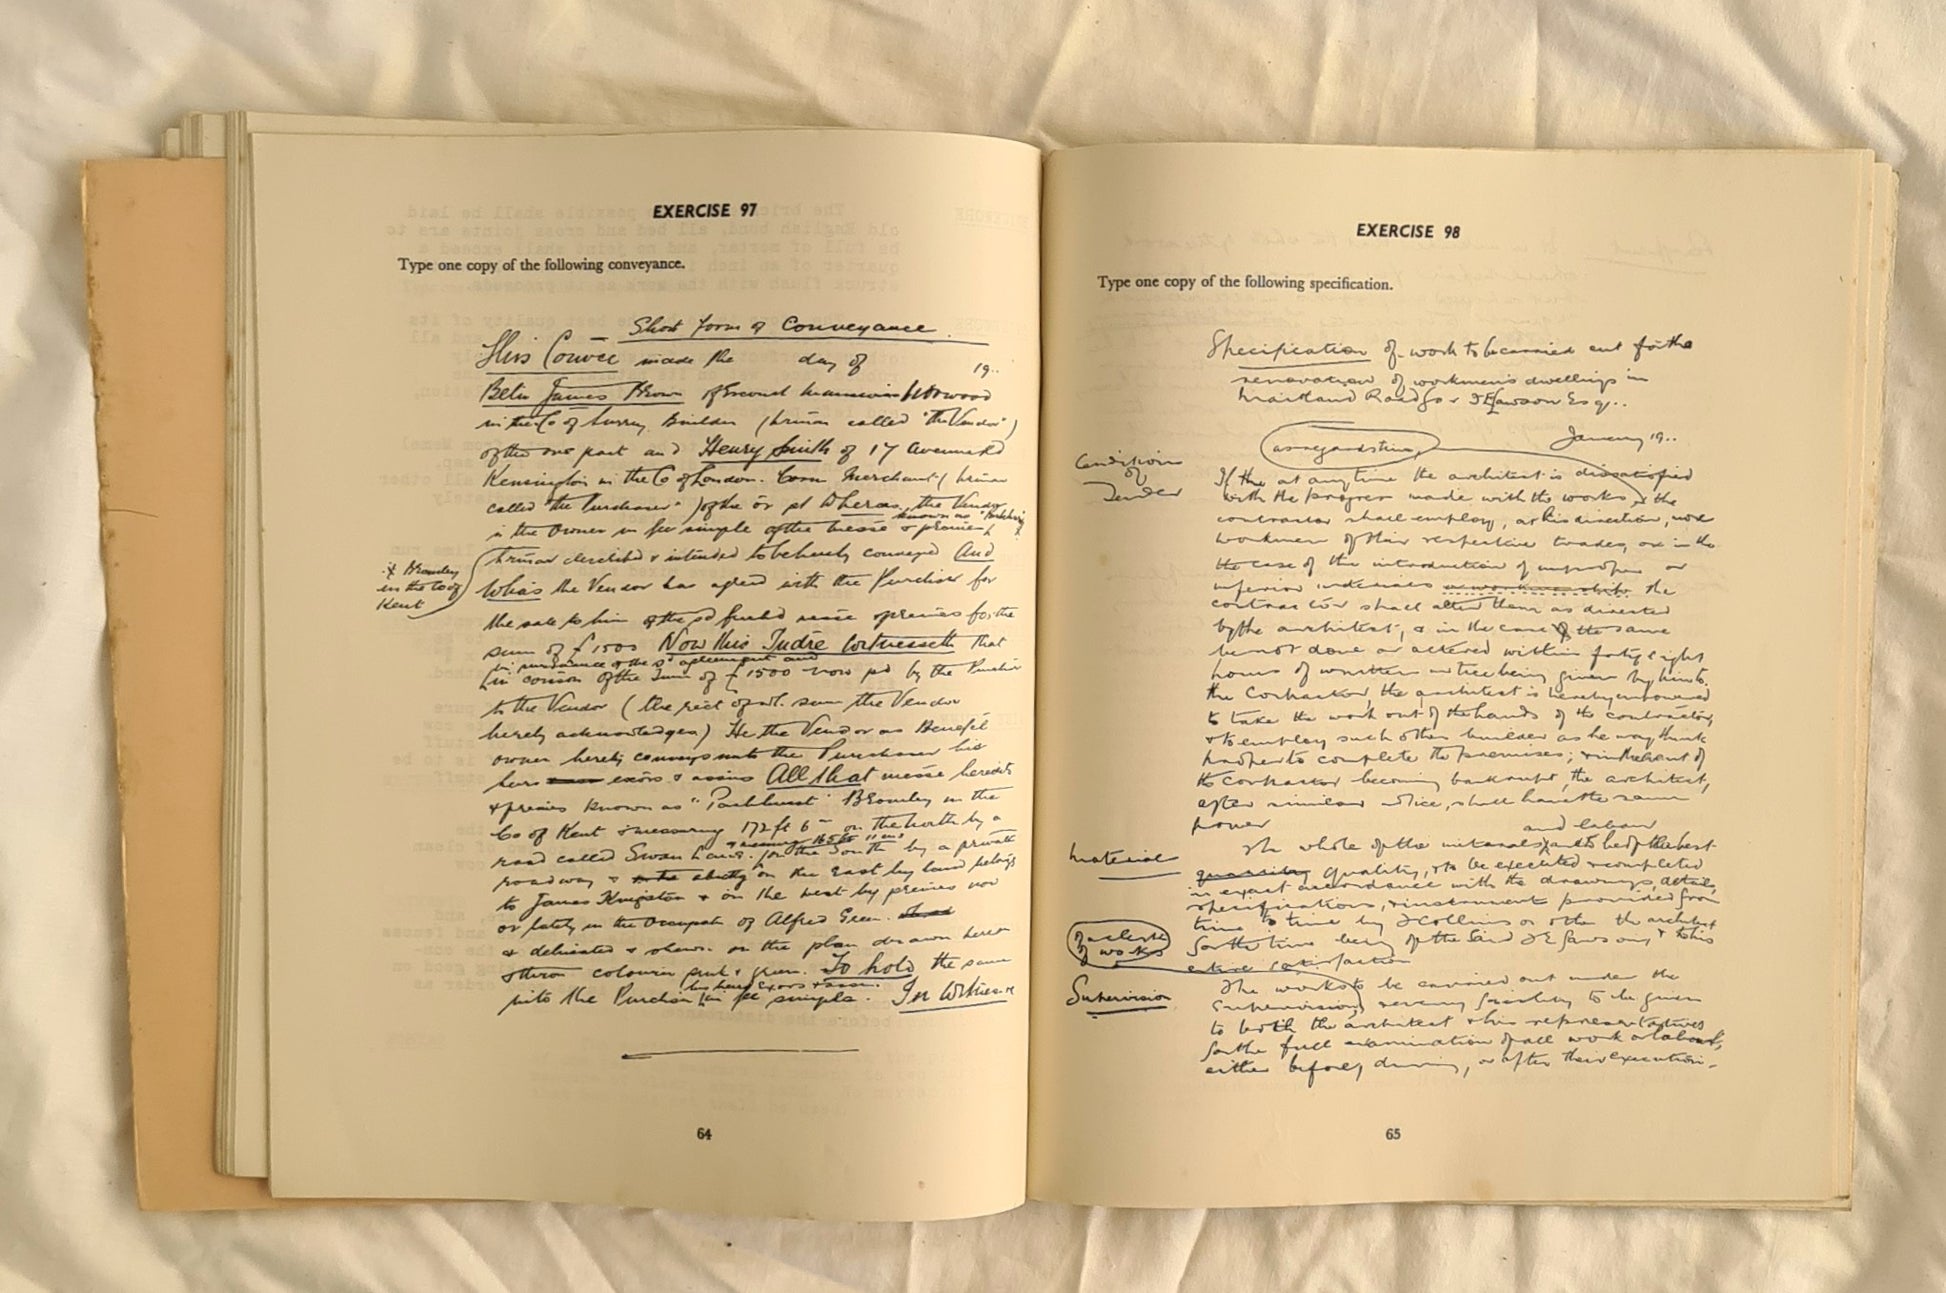 EXERCISE 97
Type one copy of the following conveyance.
Short Form of Conveyance
This Convce made the day of 19..
Betn James Brown of Mansions Norwood
in the Co of Surrey Builder (hrinar called "the Vendor")
of the one part and Henry Smith of 17
Kensington in the Co of London. Corn Merchant (hrinar
called "the Purchaser") of the or pt Whereas the Vendor
is the Owner in fee simple of the messe & premes known as
hrinar described & intended to be hereby conveyed And
at Bromley
in the Co of
Kent
Whas the Vendor has agreed with the Purchser for
the sale to him of the sd messe & premes for the
sum of £1500 Now this Indre Witnesseth that
in pursuance of the sd agreement and
in conson of the Sum of £1500 now pd by the Purchsr
to the Vendor (the rect of wh. sum the Vendor
hereby acknowledges) He the Vendor as Benefl
owner hereby conveys unto the Purchaser his
hers exors & assns All that messe heredits
& premes known as "Parkhurst" Bromley in the
Co of Kent & measuring 172 ft 6 in on the North by a
road called Swan Lane. on the South by a private
roadway & on the East by land belongg
to James Kingston & on the West by premes now
or lately in the Occupatn of Alfred Green.
& delineated & shown on the plan drawn hereon
& thron coloured pink & green. To hold the same
unto the Purchser his hers Exors & assns in fee simple. In Witness
64
EXERCISE 98
Type one copy of the following specification.
Specification of work to be carried out for the
renovation of workmen's dwellings in
Maitland Road for J E Lawson Esq..
January 19..
Conditions
of
Tender
If the at any time the architect is dissatisfied
with the progress made with the works, the
contractor shall employ, at his direction, more
workmen of their respective trades, or in the
the case of the introduction of improper or
inferior materials or workmanship the
contractor shall alter them as directed
by the architect, & in the case of the same
be not done or altered within forty eight
hours of written notice being given by him to
the Contractor, the architect is hereby empowered
to take the work out of the hands of the contractor,
& to employ such other builder as he may think
proper to complete the premises; & in the event of
the contractor becoming bankrupt, the architect,
after similar notice, shall have the same
power
Material
and labour
The whole of the materials are to be of the best
quality, & to be executed & completed
in exact accordance with the drawings, details,
specifications, & instrument provided from
time to time by J Collins or other the architect
for the time being of the said J E Lawson, & to his
entire satisfaction
of a clerk
of works
Supervision
The works to be carried out under the
supervision, every facility to be given
to both the architect & his representatives
for the full examination of all work or labour,
either before, during, or after their execution.
65